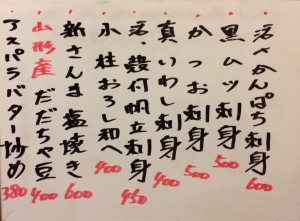 活〆かんぱち刺身 600
黒ムツ刺身 500
かつお刺身 500
真いわし刺身 400
活、殻付帆立刺身 450
小柱おろし和へ 400
新さんま塩焼き 600
山形産だだちゃ豆 400
アスパラバター炒め 380